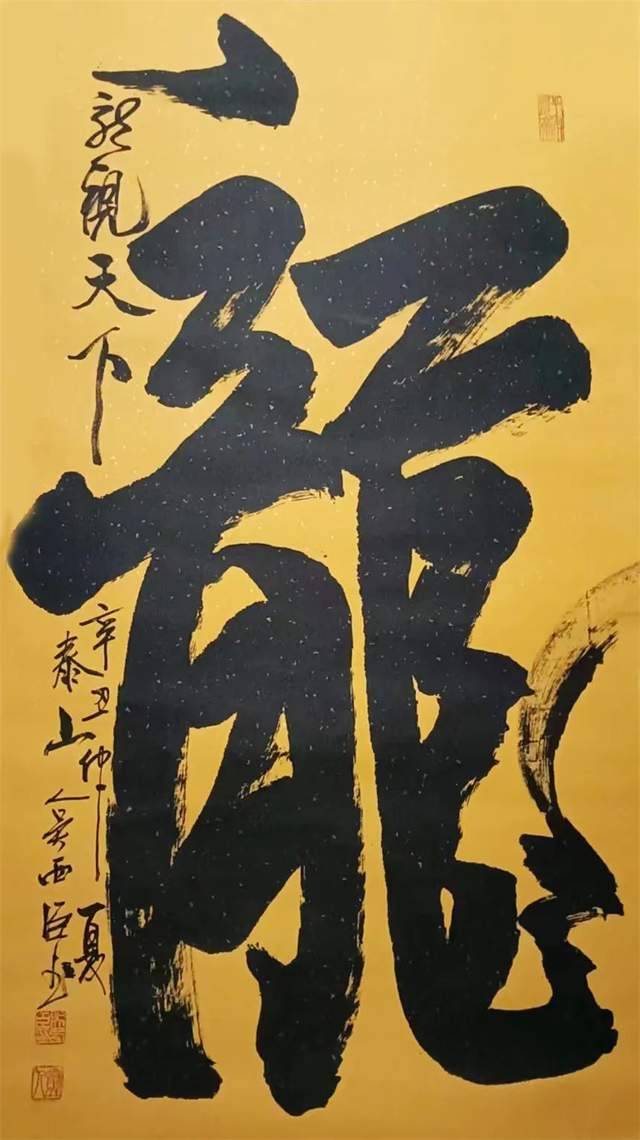 龍
龍觀天下
辛丑仲夏
泰山人吴西臣书